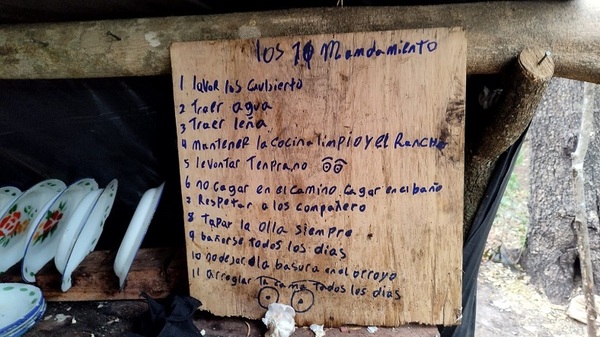 los 10 Mandamiento
1 lavar los Cubierto
2 Traer agua
3 Traer leña
4 mantener la cocina limpio y el Rancho
5 levantar Temprano
6 no cagar en el camino. cagar en el baño
7 Respetar a los compañero
8 Tapar la olla siempre
9 bañarse todos los dias
10 no dejar la basura en el arroyo
11 arreglar la cama todos los dias